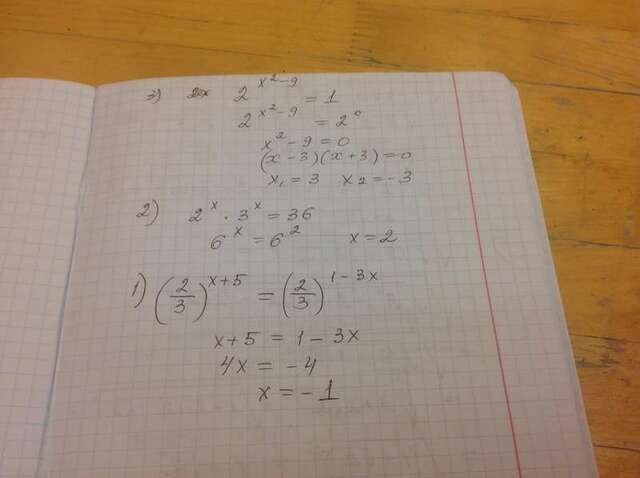 3) 2^{x^2-9} = 1
2^{x^2-9} = 2^0
x^2 - 9 = 0
(x - 3)(x + 3) = 0
x_1 = 3 x_2 = -3
2) 2^x · 3^x = 36
6^x = 6^2 x = 2
1) (2/3)^{x+5} = (2/3)^{1-3x}
x + 5 = 1 - 3x
4x = -4
x = -1